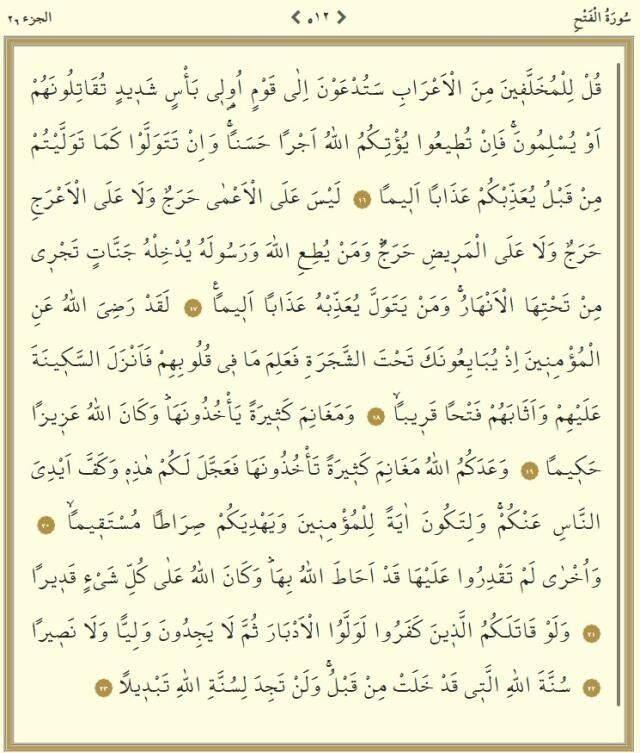 سُورَةُ الْفَتْحِ ٥١٢ الجزء ٢٦
قُلْ لِلْمُخَلَّف۪ينَ مِنَ الْاَعْرَابِ سَتُدْعَوْنَ اِلٰى قَوْمٍ اُو۬ل۪ي بَأْسٍ شَد۪يدٍ تُقَاتِلُونَهُمْ
اَوْ يُسْلِمُونَۚ فَاِنْ تُط۪يعُوا يُؤْتِكُمُ اللّٰهُ اَجْرًا حَسَناًۚ وَاِنْ تَتَوَلَّوْا كَمَا تَوَلَّيْتُمْ
مِنْ قَبْلُ يُعَذِّبْكُمْ عَذَابًا اَل۪يماً ١٦ لَيْسَ عَلَى الْاَعْمٰى حَرَجٌ وَلَا عَلَى الْاَعْرَجِ
حَرَجٌ وَلَا عَلَى الْمَر۪يضِ حَرَجٌۜ وَمَنْ يُطِعِ اللّٰهَ وَرَسُولَهُ يُدْخِلْهُ جَنَّاتٍ تَجْر۪ي
مِنْ تَحْتِهَا الْاَنْهَارُۚ وَمَنْ يَتَوَلَّ يُعَذِّبْهُ عَذَابًا اَل۪يماً۟ ١٧ لَقَدْ رَضِيَ اللّٰهُ عَنِ
الْمُؤْمِن۪ينَ اِذْ يُبَايِعُونَكَ تَحْتَ الشَّجَرَةِ فَعَلِمَ مَا ف۪ي قُلُوبِهِمْ فَاَنْزَلَ السَّك۪ينَةَ
عَلَيْهِمْ وَاَثَابَهُمْ فَتْحًا قَر۪يباًۙ ١٨ وَمَغَانِمَ كَث۪يرَةً يَأْخُذُونَهَاۜ وَكَانَ اللّٰهُ عَز۪يزًا
حَك۪يمًا ١٩ وَعَدَكُمُ اللّٰهُ مَغَانِمَ كَث۪يرَةً تَأْخُذُونَهَا فَعَجَّلَ لَكُمْ هٰذِه۪ وَكَفَّ اَيْدِيَ
النَّاسِ عَنْكُمْۚ وَلِتَكُونَ اٰيَةً لِلْمُؤْمِن۪ينَ وَيَهْدِيَكُمْ صِرَاطًا مُسْتَق۪يماًۙ ٢٠
وَاُخْرٰى لَمْ تَقْدِرُوا عَلَيْهَا قَدْ اَحَاطَ اللّٰهُ بِهَاۜ وَكَانَ اللّٰهُ عَلٰى كُلِّ شَيْءٍ قَد۪يرًا
٢١ وَلَوْ قَاتَلَكُمُ الَّذ۪ينَ كَفَرُوا لَوَلَّوُا الْاَدْبَارَ ثُمَّ لَا يَجِدُونَ وَلِيًّا وَلَا نَص۪يرًا
٢٢ سُنَّةَ اللّٰهِ الَّت۪ي قَدْ خَلَتْ مِنْ قَبْلُۚ وَلَنْ تَجِدَ لِسُنَّةِ اللّٰهِ تَبْد۪يلاً ٢٣